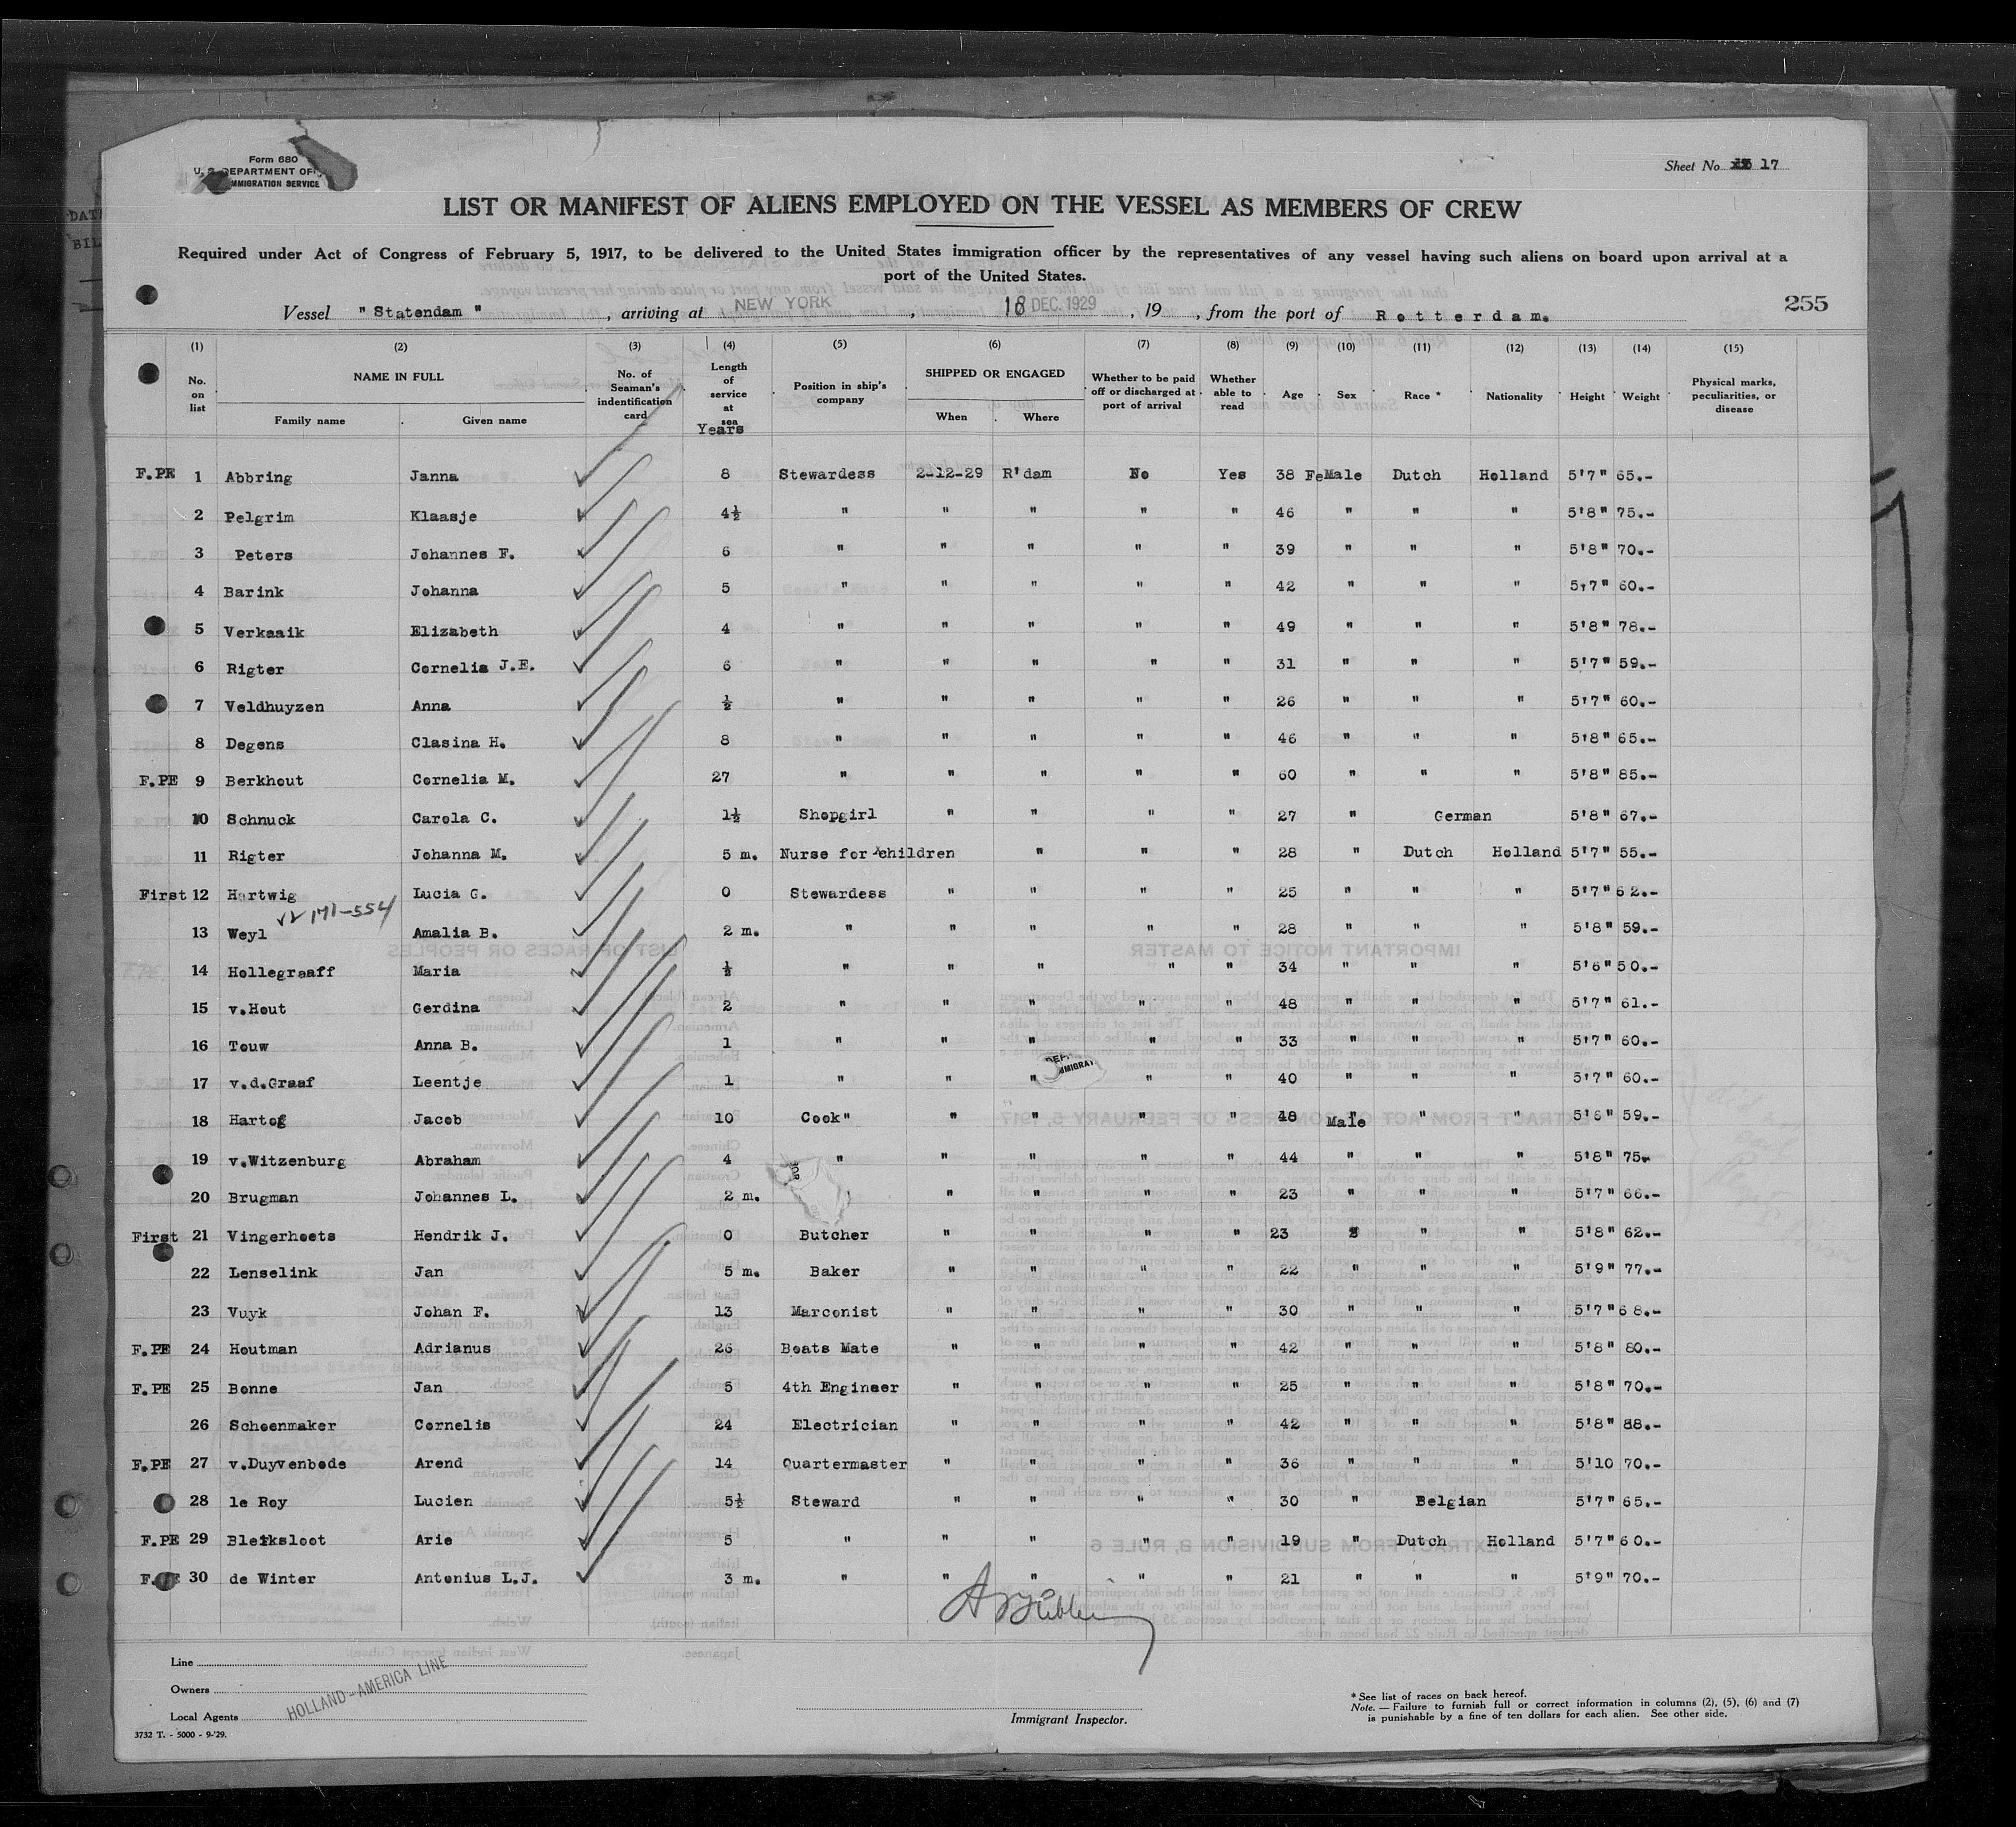 Form 680
U. S. DEPARTMENT OF
IMMIGRATION SERVICE
Sheet No. 17
LIST OR MANIFEST OF ALIENS EMPLOYED ON THE VESSEL AS MEMBERS OF CREW
Required under Act of Congress of February 5, 1917, to be delivered to the United States immigration officer by the representatives of any vessel having such aliens on board upon arrival at a
port of the United States.
Vessel "Statendam", arriving at NEW YORK, 18 DEC. 1929, 19, from the port of Rotterdam.
255
(1) (2) (3) (4) (5) (6) (7) (8) (9) (10) (11) (12) (13) (14) (15)
No. on list NAME IN FULL Family name Given name No. of Seaman's indentification card Length of service at sea Years Position in ship's company SHIPPED OR ENGAGED When Where Whether to be paid off or discharged at port of arrival Whether able to read Age Sex Race * Nationality Height Weight Physical marks, peculiarities, or disease
F.PE 1 Abbring Janna 8 Stewardess 2-12-29 R'dam No Yes 38 FeMale Dutch Holland 5'7" 65.-
2 Pelgrim Klaasje 4½ " " " " " 46 " " " 5'8" 75.-
3 Peters Johannes F. 6 " " " " " 39 " " " 5'8" 70.-
4 Barink Johanna 5 " " " " " 42 " " " 5'7" 60.-
5 Verkaaik Elizabeth 4 " " " " " 49 " " " 5'8" 78.-
6 Rigter Cornelia J.E. 6 " " " " " 31 " " " 5'7" 59.-
7 Veldhuyzen Anna ½ " " " " " 26 " " " 5'7" 60.-
8 Degens Clasina H. 8 " " " " " 46 " " " 5'8" 65.-
F.PE 9 Berkhout Cornelia M. 27 " " " " " 60 " " " 5'8" 85.-
10 Schnuck Carola C. 1½ Shopgirl " " " " 27 " German 5'8" 67.-
11 Rigter Johanna M. 5 m. Nurse for children " " " 28 " Dutch Holland 5'7" 55.-
First 12 Hartwig Lucia G. 0 Stewardess " " " " 25 " " " 5'7" 62.-
171-554
13 Weyl Amalia B. 2 m. " " " " " 28 " " " 5'8" 59.-
14 Hollegraaff Maria ½ " " " " " 34 " " " 5'6" 50.-
15 v.Hout Gerdina 2 " " " " " 48 " " " 5'7" 61.-
16 Touw Anna B. 1 " " " " " 33 " " " 5'7" 60.-
17 v.d.Graaf Leentje 1 " " " " " 40 " " " 5'7" 60.-
18 Hartog Jacob 10 Cook" " " " " 48 Male " " 5'6" 59.-
19 v.Witzenburg Abraham 4 " " " " " 44 " " " 5'8" 75.-
20 Brugman Johannes L. 2 m. " " " " 23 " " " 5'7" 66.-
First 21 Vingerhoets Hendrik J. 0 Butcher " " " " 23 " " " 5'8" 62.-
22 Lenselink Jan 5 m. Baker " " " " 22 " " " 5'9" 77.-
23 Vuyk Johan F. 13 Marconist " " " " 30 " " " 5'7" 68.-
F.PE 24 Houtman Adrianus 26 Boats Mate " " " " 42 " " " 5'8" 80.-
F.PE 25 Bonne Jan 5 4th Engineer " " " " 25 " " " 5'8" 70.-
26 Schoenmaker Cornelis 24 Electrician " " " " 42 " " " 5'8" 88.-
F.PE 27 v.Duyvenbode Arend 14 Quartermaster " " " " 36 " " " 5'10 70.-
28 le Roy Lucien 5½ Steward " " " " 30 " Belgian 5'7" 65.-
F.PE 29 Bleiksloot Arie 5 " " " " " 19 " Dutch Holland 5'7" 60.-
F.PE 30 de Winter Antonius L.J. 3 m. " " " " " 21 " " " 5'9" 70.-
Line
Owners
Local Agents
HOLLAND-AMERICA LINE
3732 T. - 5000 - 9-'29.
Immigrant Inspector.
* See list of races on back hereof.
Note. — Failure to furnish full or correct information in columns (2), (5), (6) and (7)
is punishable by a fine of ten dollars for each alien. See other side.